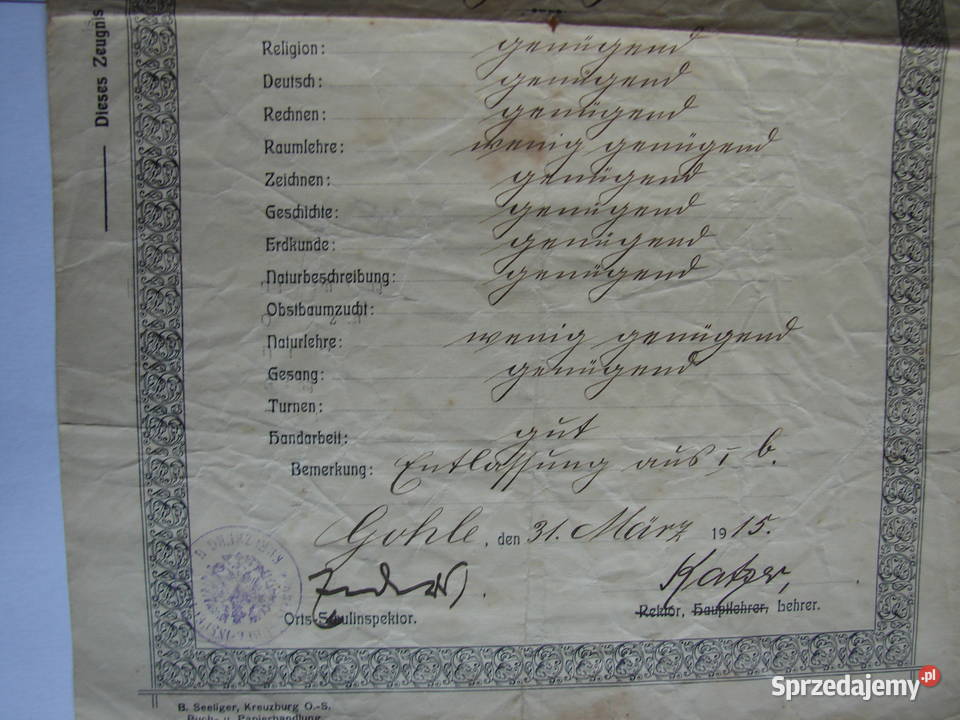 Dieses Zeugnis
Religion: genügend
Deutsch: genügend
Rechnen: genügend
Raumlehre: wenig genügend
Zeichnen: genügend
Geschichte: genügend
Erdkunde: genügend
Naturbeschreibung: genügend
Obstbaumzucht:
Naturlehre: wenig genügend
Gesang: genügend
Turnen:
Handarbeit: gut
Bemerkung: Entlassung aus I b.
Gohle, den 31. März 1915.
Orts-Schulinspektor.
Rektor, Hauptlehrer, Lehrer.
B. Seeliger, Kreuzburg O.-S.
Buch- u. Papierhandlung
Sprzedajemy.pl